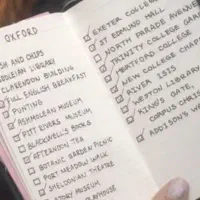 OXFORD
SH AND CHIPS
DLEIAN LIBRARY
CLARENDON BUILDING
FULL ENGLISH BREAKFAST
PUNTING
ASHMOLEAN MUSEUM
PITT RIVERS MUSEUM
BLACKWELL'S BOOKS
AFTERNOON TEA
BOTANIC GARDEN PICNIC
PORT MEADOW WALK
SHELDONIAN THEATRE
STORY MUSEUM
PLAYHOUSE
EXETER COLLEGE
ST EDMUND HALL
NORTH PARADE AVENUE
TRINITY COLLEGE GARD
HERTFORD COLLEGE
NEW COLLEGE CHAP
RIVER ISIS
WESTON LIBRARY
KING'S GATE,
CORPUS CHRIS
ADDISON'S W